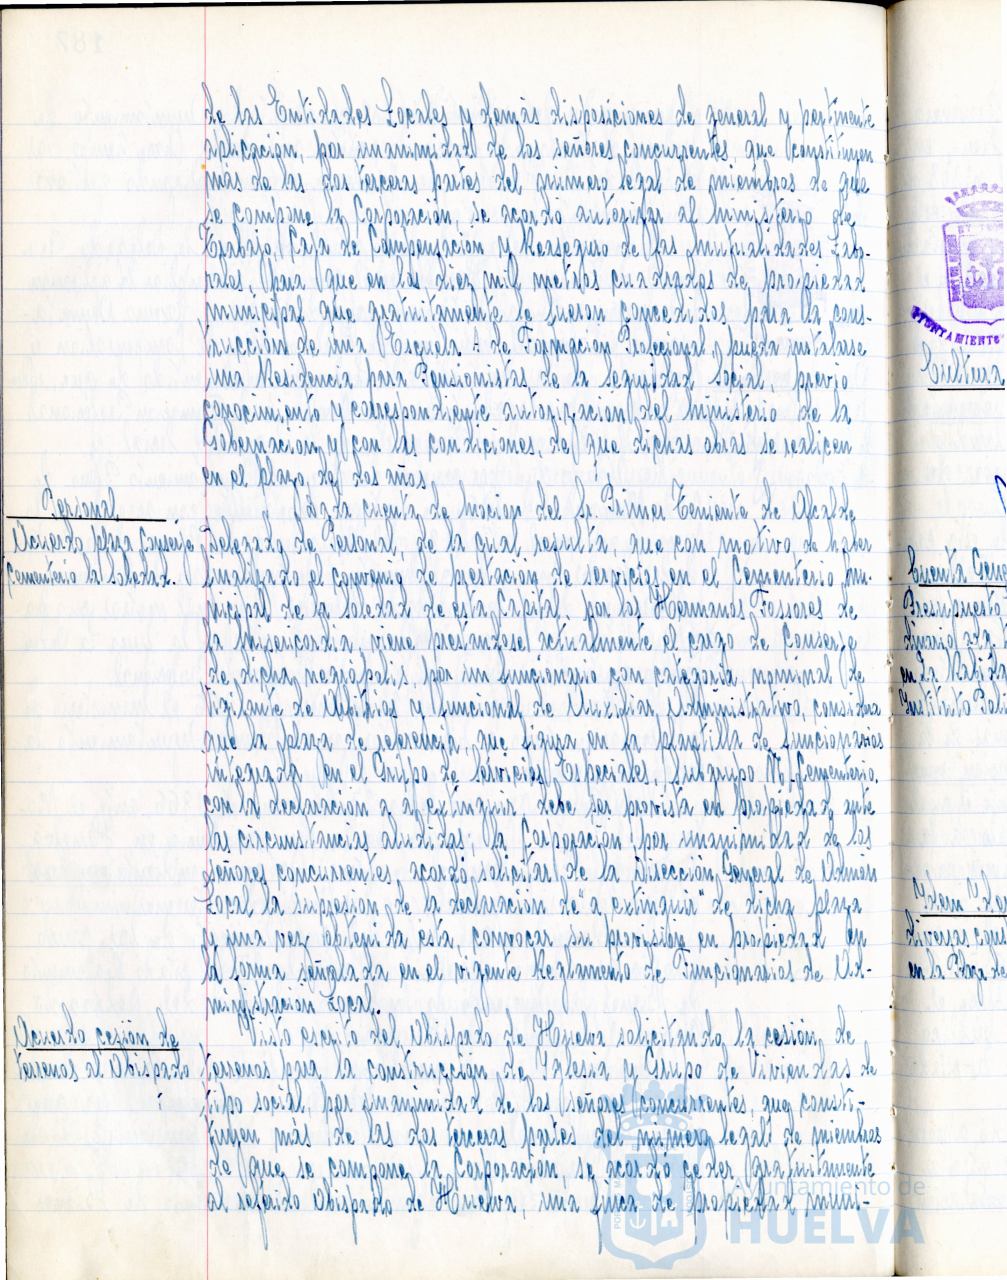 de las Entidades Locales y demás disposiciones de general y pertinente
aplicación, por unanimidad de los señores concurrentes, que constituyen
mas de las dos terceras partes del número legal de miembros de que
se compone la Corporación, se acordó autorizar al Ministerio de
Trabajo, Caja de Compensación y Reaseguro de las Mutualidades Labo-
rales, para que en los diez mil metros cuadrados de propiedad
municipal que gratuitamente le fueron concedidos para la cons-
trucción de una Escuela de Formación Profesional, pueda instalarse
una Residencia para Pensionistas de la Seguridad Social, previo
conocimiento y correspondiente autorización del Ministerio de la
Gobernación y con las condiciones de que dichas obras se realicen
en el plazo de dos años.
Personal
Acuerdo plaza Conserje
Cementerio la Soledad.
Dada cuenta de moción del Sr. Primer Teniente de Alcalde
Delegado de Personal, de la cual resulta, que con motivo de haber
finalizado el convenio de prestación de servicios en el Cementerio mu-
nicipal de la Soledad de esta Capital, por los Hermanos Fossores de
la Misericordia, viene prestandose actualmente el cargo de Conserje
de dicha necropolis, por un funcionario con categoría nominal de
Vigilante de Arbitrios y funcional de Auxiliar Administrativo, considera
que la plaza de referencia, que figura en la plantilla de funcionarios
integrada en el Grupo de Servicios Especiales, Subgrupo Cementerio,
con la declaración a extinguir debe ser provista en propiedad ante
las circunstancias aludidas; la Corporación, por unanimidad de los
señores concurrentes, acordó solicitar de la Dirección General de Admón
Local la supresión de la declaración de "a extinguir" de dicha plaza
y una vez obtenida esta, convocar su provisión en propiedad en
la forma señalada en el vigente Reglamento de Funcionarios de Ad-
ministración Local.
Acuerdo cesión de
terrenos al Obispado
Visto escrito del Obispado de Huelva solicitando la cesión de
terrenos para la construcción de Iglesia y Grupo de Viviendas de
tipo social, por unanimidad de los señores concurrentes, que consti-
tuyen más de las dos terceras partes del número legal de miembros
de que se compone la Corporación, se acordó ceder gratuitamente
al referido Obispado de Huelva, una finca de propiedad muni-
Ayuntamiento de
HUELVA
AYUNTAMIENTO
Cultura
Cuenta Gene
Presupuesto
en la Rábida
Instituto
Idem Idem
Diversas cons
en la Plaza de